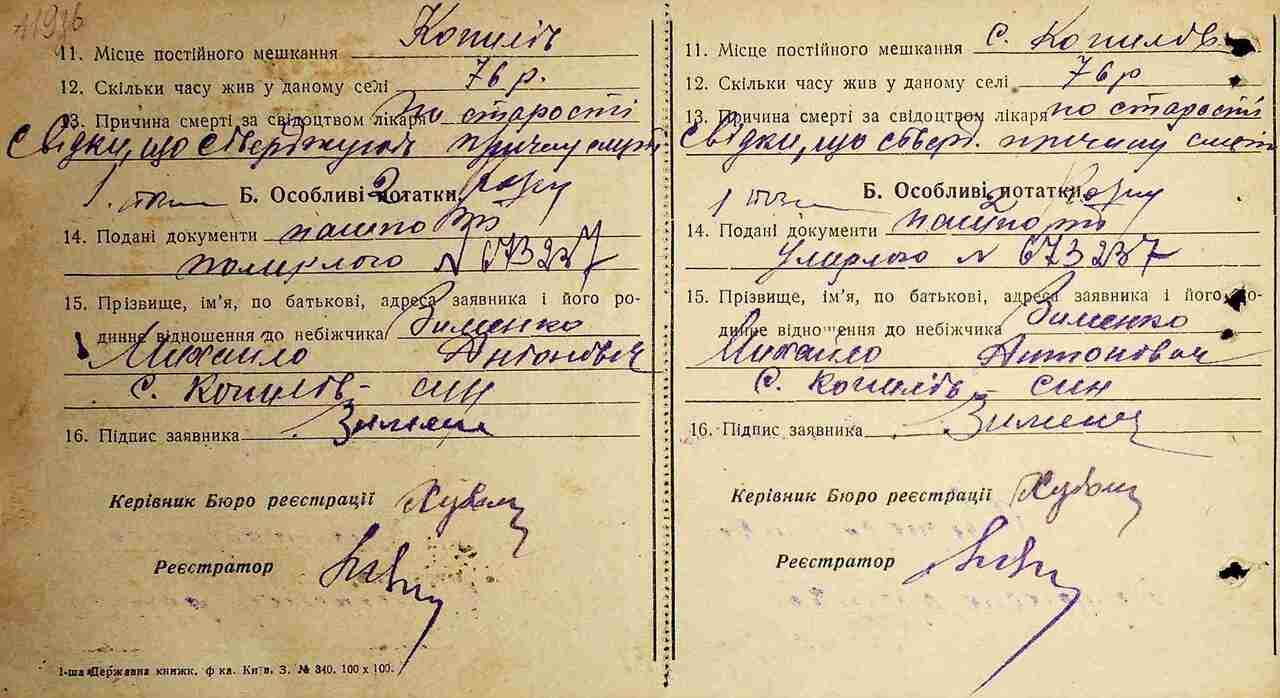 11. Місце постійного мешкання Копилів
12. Скільки часу жив у даному селі 76 р.
13. Причина смерті за свідоцтвом лікаря по старості
свідки, що стверджують причину смерті
1. 2.
Б. Особливі нотатки.
14. Подані документи пашпорт
помирлого N 673237
15. Прізвище, ім'я, по батькові, адреса заявника і його ро-
динне відношення до небіжчика Зименко
Михайло Антонович
с. Копилів - син
16. Підпис заявника Зимен
Керівник Бюро реєстрації
Реєстратор
1-ша Державна книжк. ф-ка. Київ, З. № 340. 100 х 100.
11. Місце постійного мешкання с. Копилів
12. Скільки часу жив у даному селі 76 р
13. Причина смерті за свідоцтвом лікаря по старості
свідки, що стверд. причину смерті
1 2
Б. Особливі нотатки.
14. Подані документи пашпорт
умирлого N 673237
15. Прізвище, ім'я, по батькові, адреса заявника і його ро-
динне відношення до небіжчика Зименко
Михайло Антонович
с. Копилів - син
16. Підпис заявника Зимен
Керівник Бюро реєстрації
Реєстратор